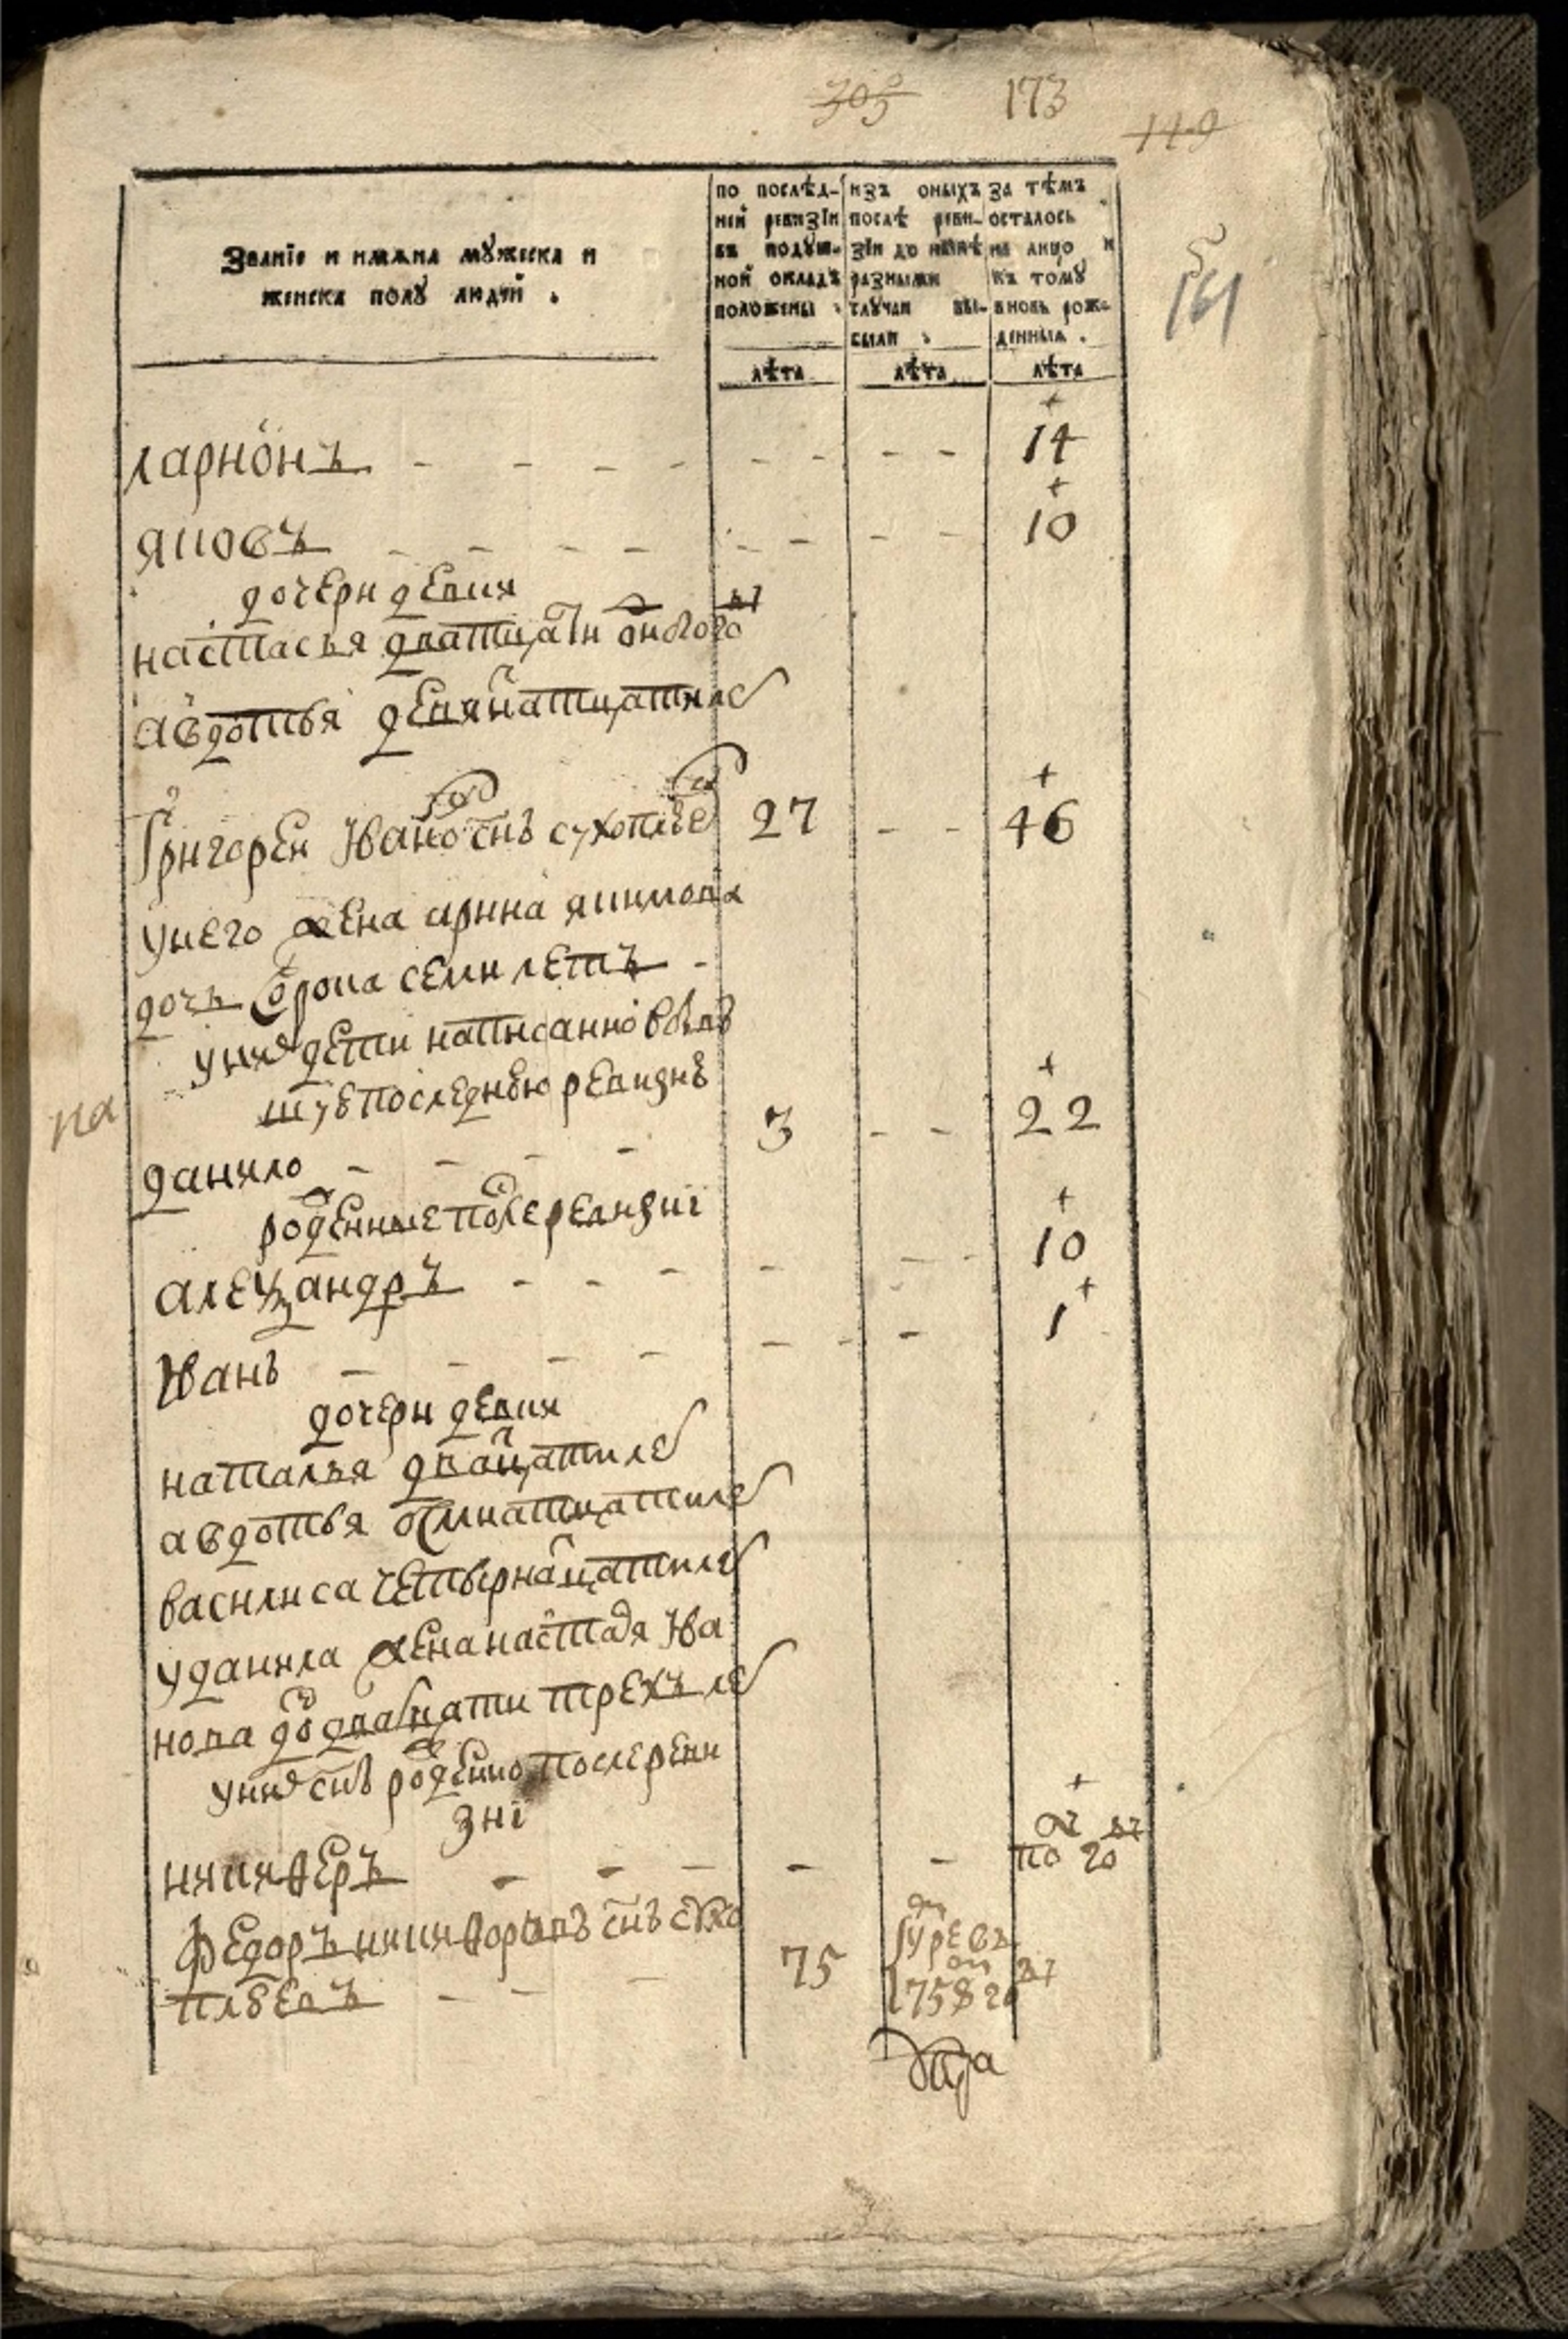 305 173
119
161
Званїе и имѧна мꙋжеска и
женска полꙋ людей .
по послѣд-
ней ревизїи
въ подꙋш-
ной окладъ
положены .
лѣта
изъ оныхъ
послѣ реви-
зїи до нынѣ
разными
слꙋчаи вы-
были .
лѣта
за тѣмъ
осталось
на лицо и
къ томꙋ
вновь рож-
денныа .
лѣта
ларионъ - - - - - - - - 14
яковъ - - - - - - - - 10
дочери девки
настасья дватцати одного
авдотья девятнатцати лѣ
Григореи Ивановъ снъ сухоплюев 27 - - 46
унего жена арина якимова
дочь сорока семи летъ -
унихъ дети написанно въ
последнею ревизие
данило - - - - 3 - - 22
рожденные после ревизиї
алеѯандръ - - - - - - 10
Иванъ - - - - - - - 1
дочери девки
наталья дватцати ле
авдотья осмнатцати ле
василиса четырнатцати ле
уданила жена настася Ива
нова дочь дватцати трехъ ле
унихъ снъ рожденно после реви
зиї
никиѳеръ - - - - - по го
Ѳедоръ никиѳоровъ снъ сухо 75
плюевъ - - - 758 го